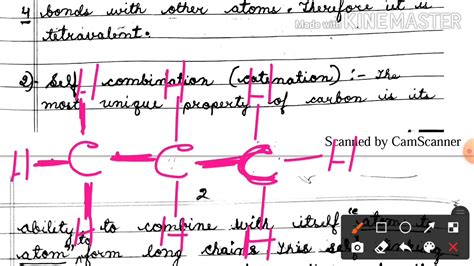 4 bonds with other atoms. Therefore it is
Made with KINEMASTER
tetravalent.
H H H
2) Self combination (catenation) :- The
most unique property of carbon is its
Scanned by CamScanner
H C C C H
2
ability to combine with itself atom to
atom, to form long chains. This self
H H H